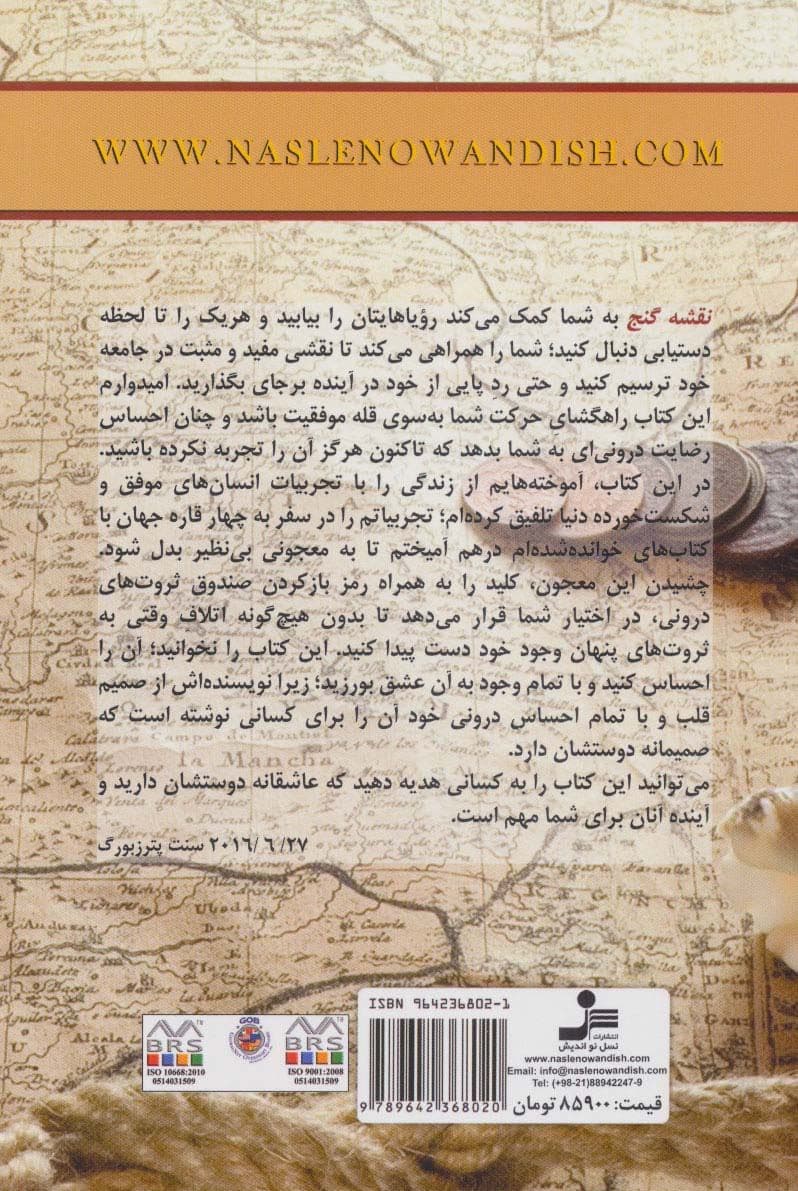 WWW.NASLENOWANDISH.COM
نقشه گنج به شما کمک می‌کند رؤیاهایتان را بیابید و هریک را تا لحظه
دستیابی دنبال کنید؛ شما را همراهی می‌کند تا نقشی مفید و مثبت در جامعه
خود ترسیم کنید و حتی ردِ پایی از خود در آینده برجای بگذارید. امیدوارم
این کتاب راهگشایِ حرکت شما به‌سوی قله موفقیت باشد و چنان احساس
رضایت درونی‌ای به شما بدهد که تاکنون هرگز آن را تجربه نکرده باشید.
در این کتاب، آموخته‌هایم از زندگی را با تجربیات انسان‌های موفق و
شکست‌خورده دنیا تلفیق کرده‌ام؛ تجربیاتم را در سفر به چهار قاره جهان با
کتاب‌های خوانده‌شده‌ام درهم آمیختم تا به معجونی بی‌نظیر بدل شود.
چشیدن این معجون، کلید را به همراه رمز بازکردن صندوق ثروت‌های
درونی، در اختیار شما قرار می‌دهد تا بدون هیچ‌گونه اتلافِ وقتی به
ثروت‌های پنهان وجود خود دست پیدا کنید. این کتاب را نخوانید؛ آن را
احساس کنید و با تمام وجود به آن عشق بورزید؛ زیرا نویسنده‌اش از صمیم
قلب و با تمام احساس درونی خود آن را برای کسانی نوشته است که
صمیمانه دوستشان دارد.
می‌توانید این کتاب را به کسانی هدیه دهید که عاشقانه دوستشان دارید و
آینده آنان برای شما مهم است.
۲۷/ ۶ /۲۰۱۶ سنت پترزبورگ
la Mancha
Ubeda
BRS
ISO 10668:2010
0514031509
GOB
BRS
ISO 9001:2008
0514031509
ISBN 964236802-1
9 789642 368020
انتشارات
نسل نو اندیش
www.naslenowandish.com
Email: info@naslenowandish.com
Tel: (+98-21)88942247-9
قیمت: ۸۵۹۰۰ تومان